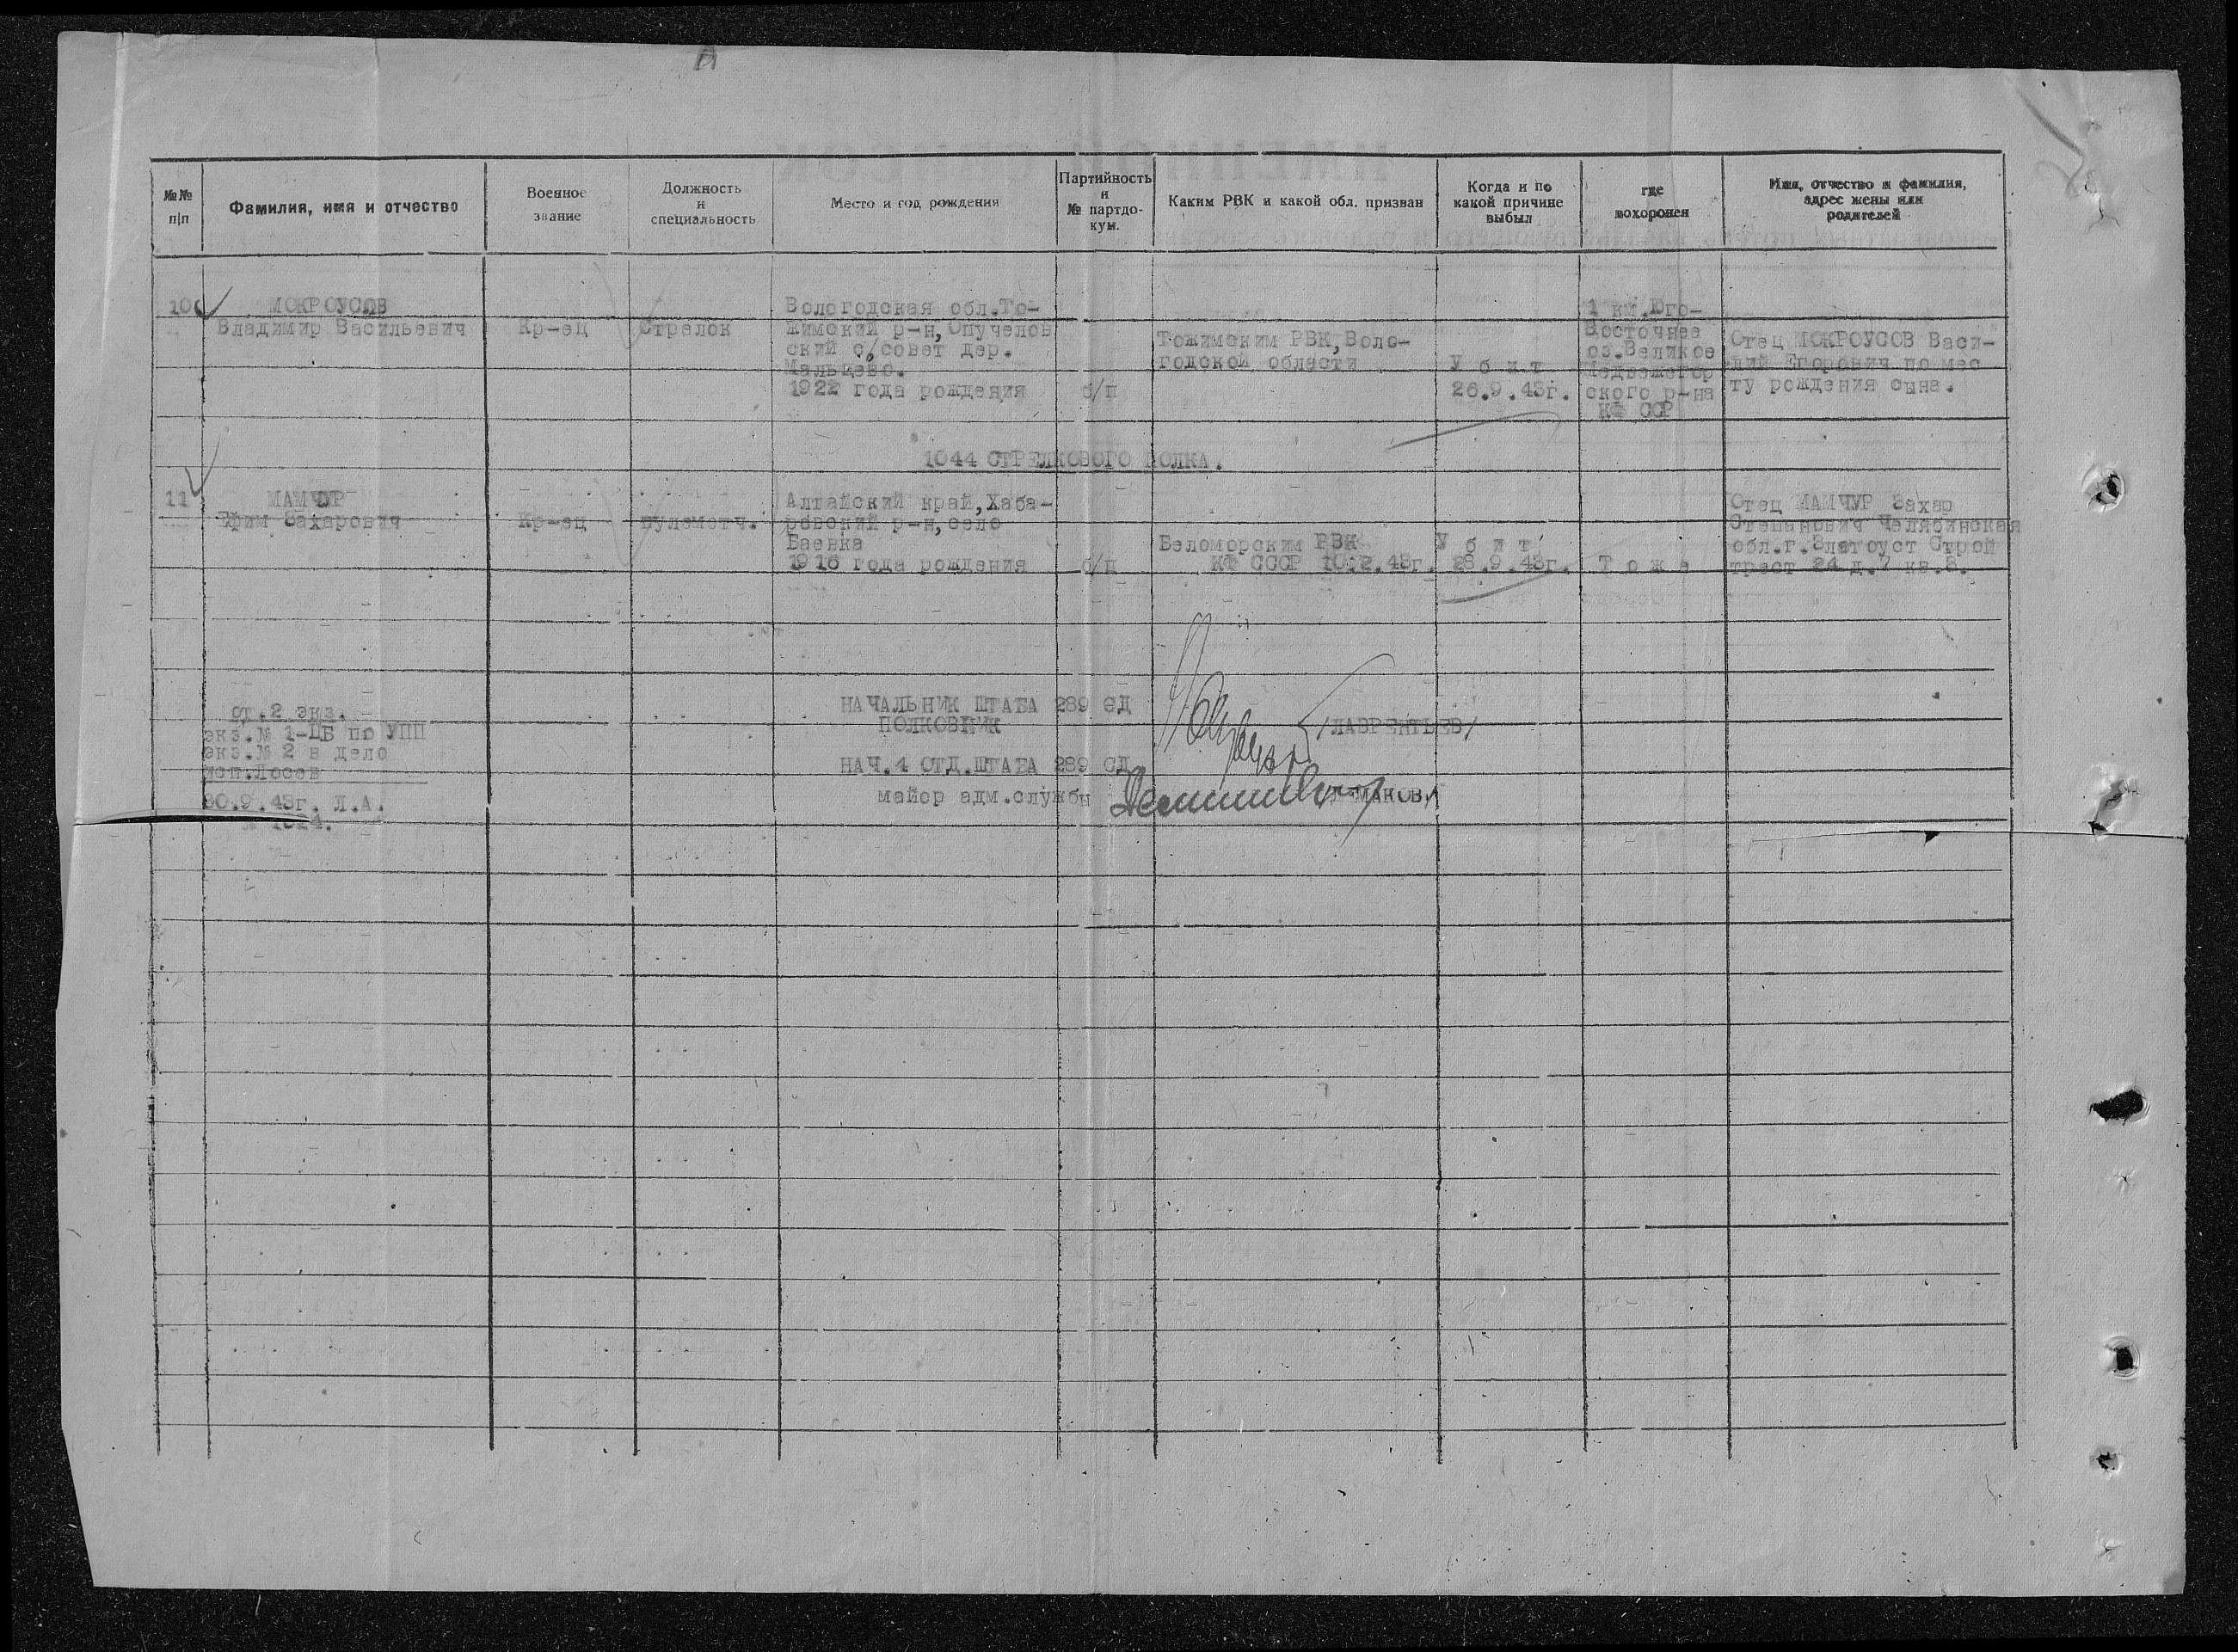 №№ п|п
Фамилия, имя и отчество
Военное
звание
Должность
и
специальность
Место и год рождения
Партийность
и
№ партдо-
кум.
Каким РВК и какой обл. призван
Когда и по
какой причине
выбыл
где
похоронен
Имя, отчество и фамилия,
адрес жены или
родителей
10
МОКРОУСОВ
Владимир Васильевич
Кр-ец
Стрелок
Вологодская обл.То-
жимский р-н, Опучелов
ский с/совет дер.
Мальцево.
1922 года рождения
б/п
Тожимским РВК, Воло-
годской области
У б и т
26.9.43г.
1 км.Юго-
Восточнее
оз.Великое
Медвежегор
ского р-на
КФ ССР
Отец МОКРОУСОВ Васи-
лий Егорович по мес
ту рождения сына.
1044 СТРЕЛКОВОГО ПОЛКА.
11
МАМЧУР
Ефим Захарович
Кр-ец
пулеметч.
Алтайский край, Хаба-
ровский р-н, село
Баевка
1916 года рождения
б/п
Беломорским РВК
КФ СССР 10.2.43г.
У б и т
28.9.43г.
Т о ж е
Отец МАМЧУР Захар
Степанович Челябинская
обл.г.Златоуст Строй
трест 24 д.7 кв.
НАЧАЛЬНИК ШТАБА 289 СД
ПОЛКОВНИК
/ЛАВРЕНТЬЕВ/
НАЧ.4 ОТД.ШТАБА 289 СД
майор адм.службы
от.2 экз.
экз.№ 1-ЦБ по УПП
экз.№ 2 в дело
исп.Лосев
30.9.43г. Л.А.